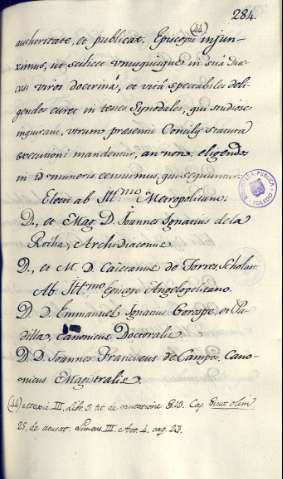 284.
(44)
authoritate, et publicat. Episcopis injun-
ximus, ut scilicet unusquisque in sua Diæ-
cesi viros doctrina, et vita spectabiles deli-
gendos curet in testes Synodales, qui studiose
inquirant, utrum præsentis Concilij statuta
executioni mandentur, an non: eligendos
in id muneris censuimus, qui sequuntur.
Electi ab Ill.mo Metropolitano.
D., et Mag. D. Joannes Ignatius de la
Rocha, Archidiaconus
D., et M. D. Caietanus de Torres, Scholas.
Ab Ill.mo Episcopo Angelopolitano.
D. D. Emmanuel Ignatius Gorospe, et Pa-
dilla, Canonicus Doctoralis
D. D. Joannes Franciscus de Campo, Cano-
nicus Magistralis
(44) Mexic. III, Lib. 5. tit. de Cap. Sicut olim
25. de accusat. Limens. III. Act. 4. cap. 23.